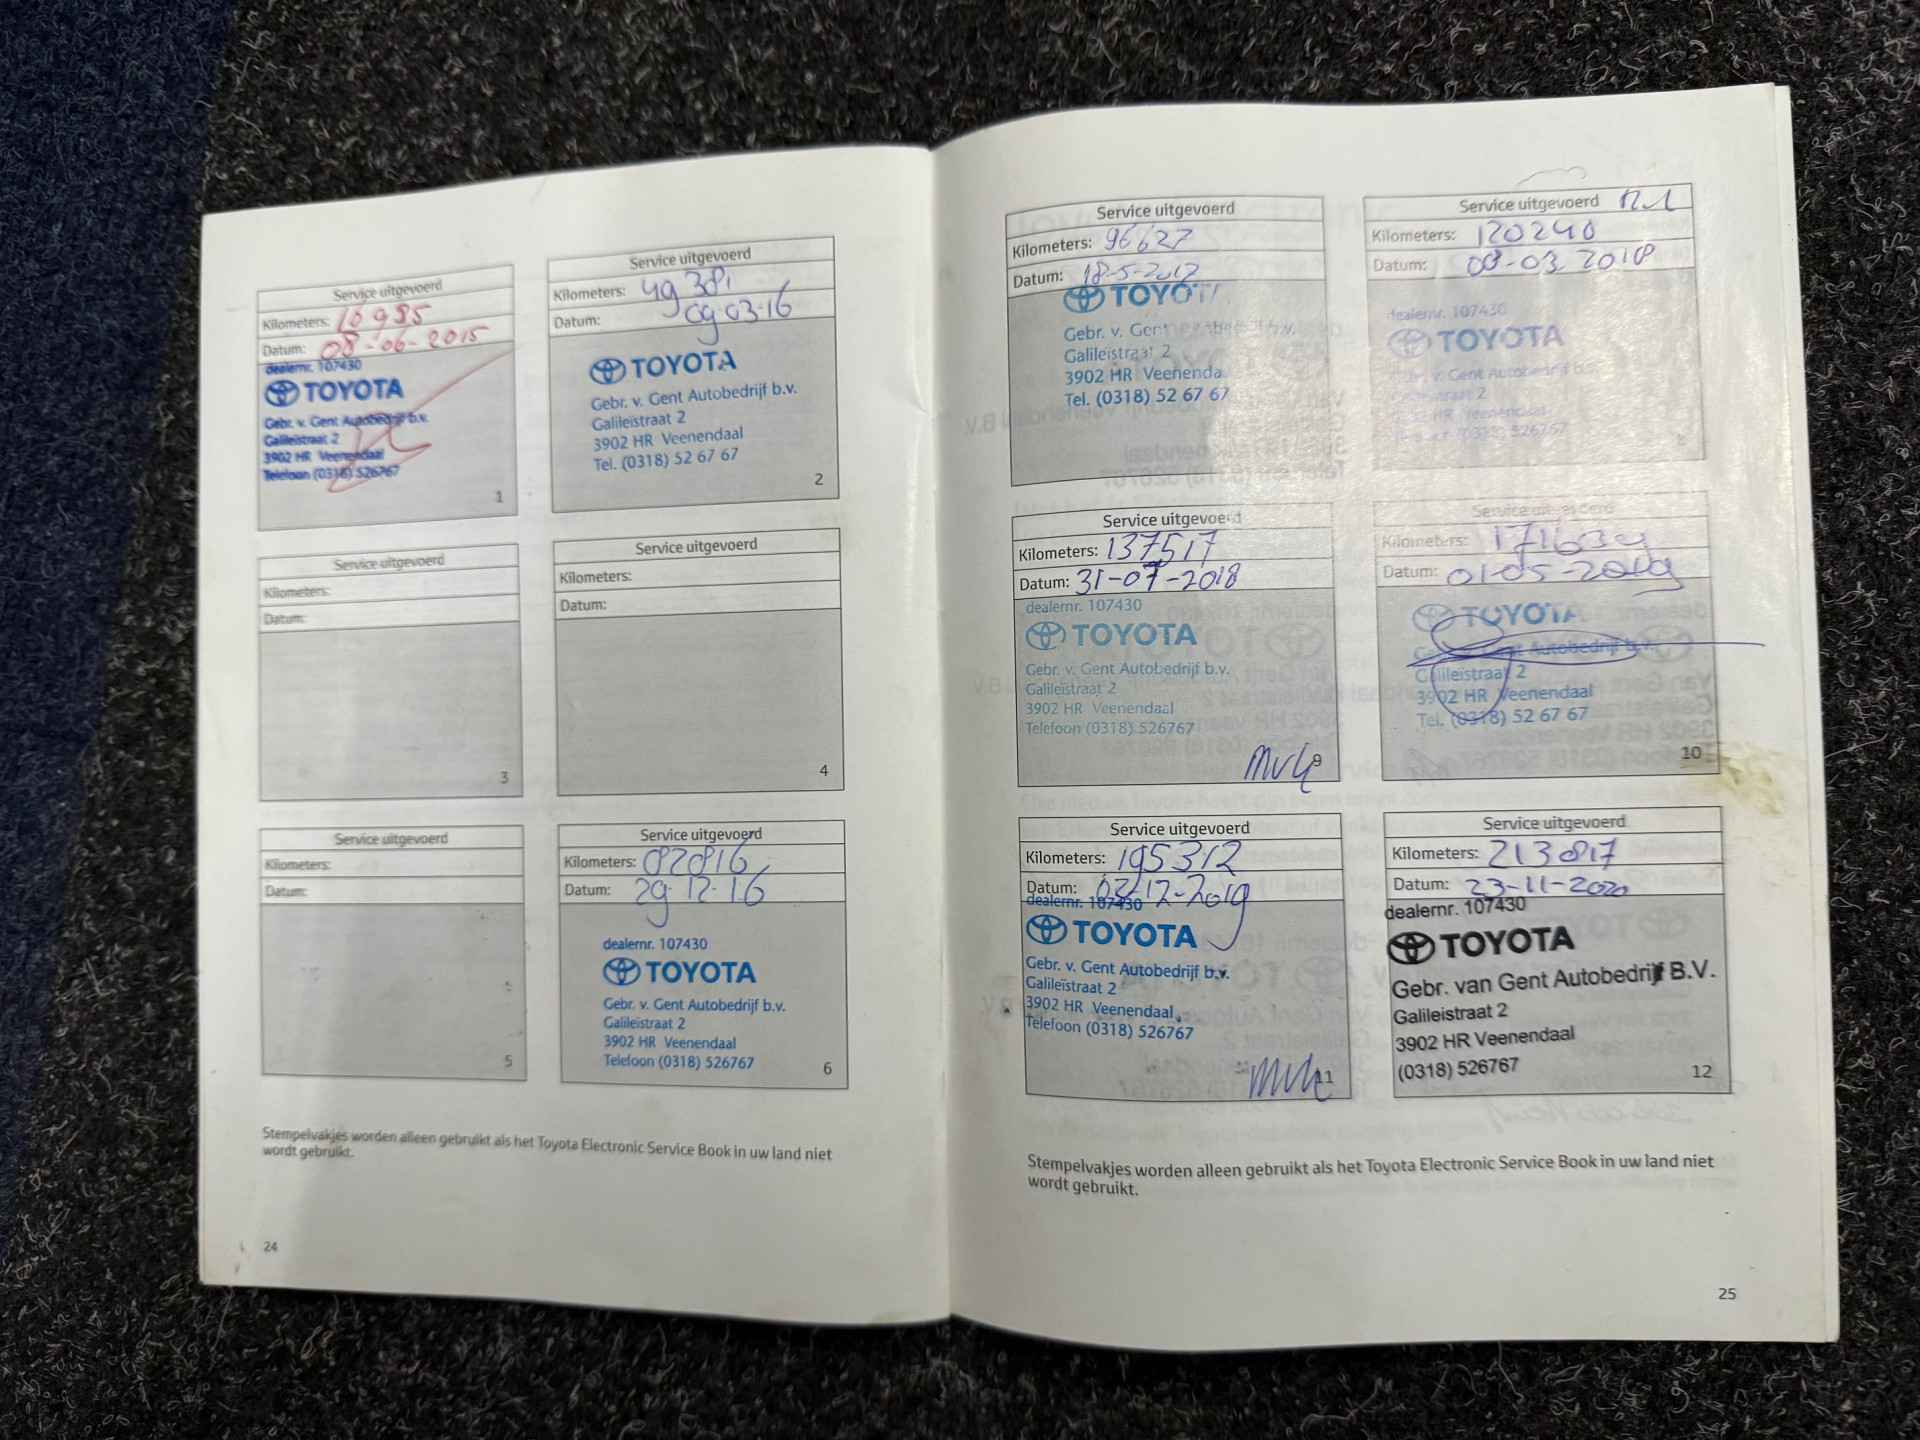 Service uitgevoerd
Kilometers: 16985
Datum: 08-06-2015
dealernr. 107430
TOYOTA
Gebr. v. Gent Autobedrijf b.v.
Galileïstraat 2
3902 HR Veenendaal
Telefoon (0318) 526767
1
Service uitgevoerd
Kilometers: 49381
Datum: 09 03-16
TOYOTA
Gebr. v. Gent Autobedrijf b.v.
Galileïstraat 2
3902 HR Veenendaal
Tel. (0318) 52 67 67
2
Service uitgevoerd
Kilometers:
Datum:
3
Service uitgevoerd
Kilometers:
Datum:
4
Service uitgevoerd
Kilometers:
Datum:
5
Service uitgevoerd
Kilometers: 082816
Datum: 29-12-16
dealernr. 107430
TOYOTA
Gebr. v. Gent Autobedrijf b.v.
Galileïstraat 2
3902 HR Veenendaal
Telefoon (0318) 526767
6
Stempelvakjes worden alleen gebruikt als het Toyota Electronic Service Book in uw land niet
wordt gebruikt.
24
Service uitgevoerd
Kilometers: 96627
Datum: 18-5-2017
TOYOTA
Gebr. v. Gent b.v.
Galileïstraat 2
3902 HR Veenenda
Tel. (0318) 52 67 67
Service uitgevoerd
Kilometers: 120240
Datum: 08-03 2018
dealernr. 107430
TOYOTA
v. Gent Autobedrijf b.v.
straat 2
HR Veenendaal
(0318) 526767
Service uitgevoerd
Kilometers: 137517
Datum: 31-07-2018
dealernr. 107430
TOYOTA
Gebr. v. Gent Autobedrijf b.v.
Galileïstraat 2
3902 HR Veenendaal
Telefoon (0318) 526767
9
Service uitgevoerd
Kilometers: 171639
Datum: 01-05-2019
TOYOTA
Gent Autobedrijf b.v.
Galileïstraat 2
3902 HR Veenendaal
Tel. (0318) 52 67 67
10
Service uitgevoerd
Kilometers: 195312
Datum: 02-12-2019
dealernr. 107430
TOYOTA
Gebr. v. Gent Autobedrijf b.v.
Galileïstraat 2
3902 HR Veenendaal
Telefoon (0318) 526767
11
Service uitgevoerd
Kilometers: 213817
Datum: 23-11-2020
dealernr. 107430
TOYOTA
Gebr. van Gent Autobedrijf B.V.
Galileistraat 2
3902 HR Veenendaal
(0318) 526767
12
Stempelvakjes worden alleen gebruikt als het Toyota Electronic Service Book in uw land niet
wordt gebruikt.
25